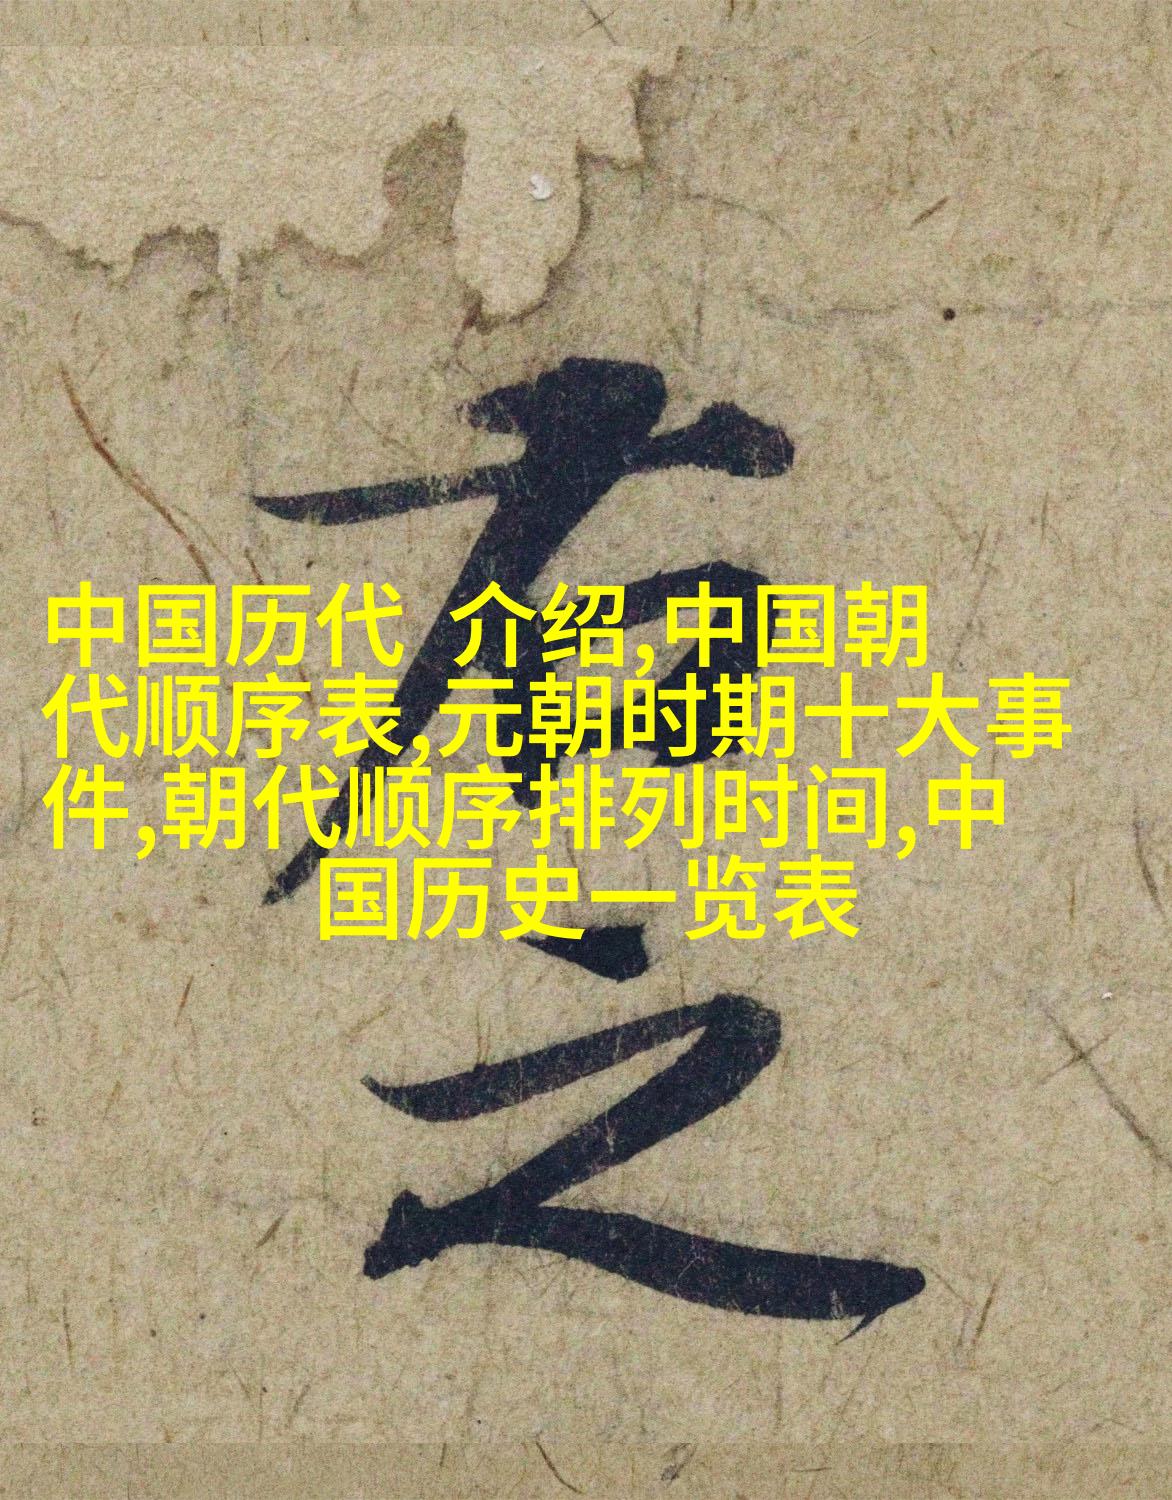 中国历代 介绍,中国朝
代顺序表,元朝时期十大事
件,朝代顺序排列时间,中
国历史一览表
之